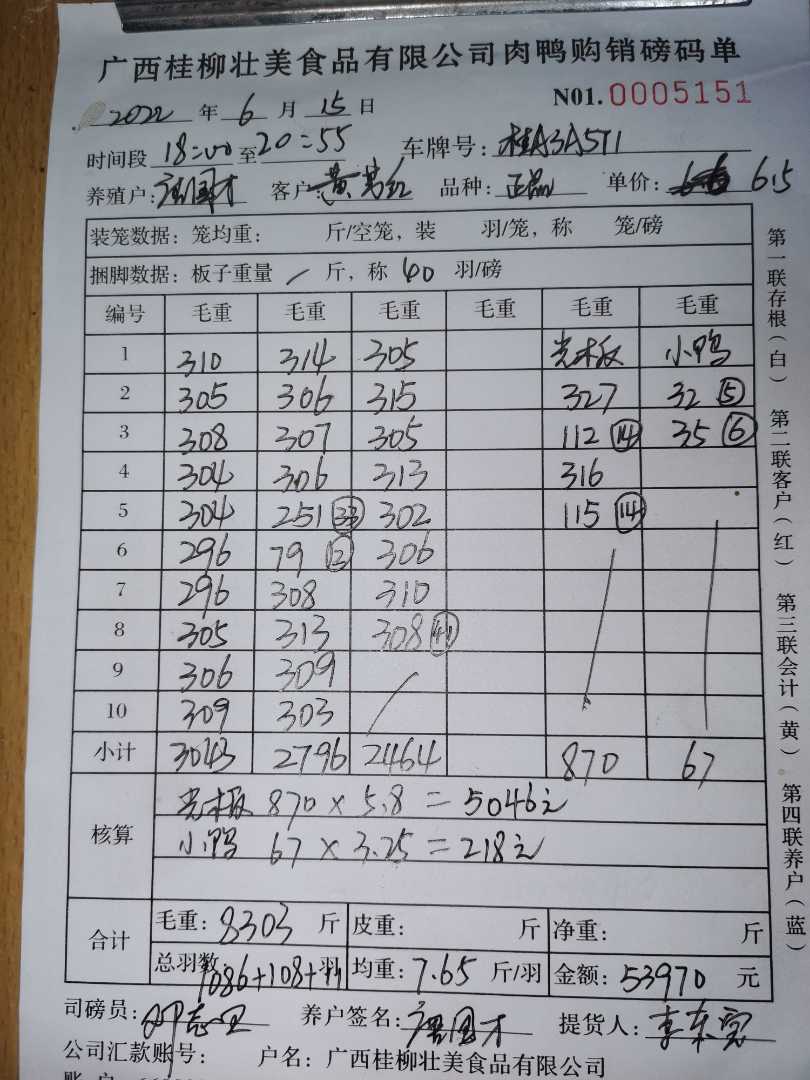 广西桂柳壮美食品有限公司肉鸭购销磅码单
2022 年 6 月 15 日 N01. 0005151
时间段 18:00 至 20:55 车牌号: 桂A3A5T1
养殖户: 客户: 黄 红 品种: 正品 单价: 6.5
装笼数据: 笼均重: 斤/空笼, 装 羽/笼, 称 笼/磅
捆脚数据: 板子重量 / 斤, 称 40 羽/磅
编号 毛重 毛重 毛重 毛重 毛重 毛重
1 310 314 305 光板 小鸭
2 305 306 315 327 32 ⑤
3 308 307 305 112 ⑭ 35 ⑥
4 304 306 313 316
5 304 251 302 115 ⑭
6 296 79 ⑫ 306
7 296 308 310
8 305 313 308
9 306 309
10 309 303
小计 3043 2796 2464 870 67
核算
光板 870 × 5.8 = 5046元
小鸭 67 × 3.25 = 218元
合计
毛重: 8303 斤 皮重: 斤 净重: 斤
总羽数: 1086+108+11 羽 均重: 7.65 斤/羽 金额: 53970 元
司磅员: 养户签名: 提货人:
公司汇款账号: 户名: 广西桂柳壮美食品有限公司
第一联存根(白) 第二联客户(红) 第三联会计(黄) 第四联养户(蓝)